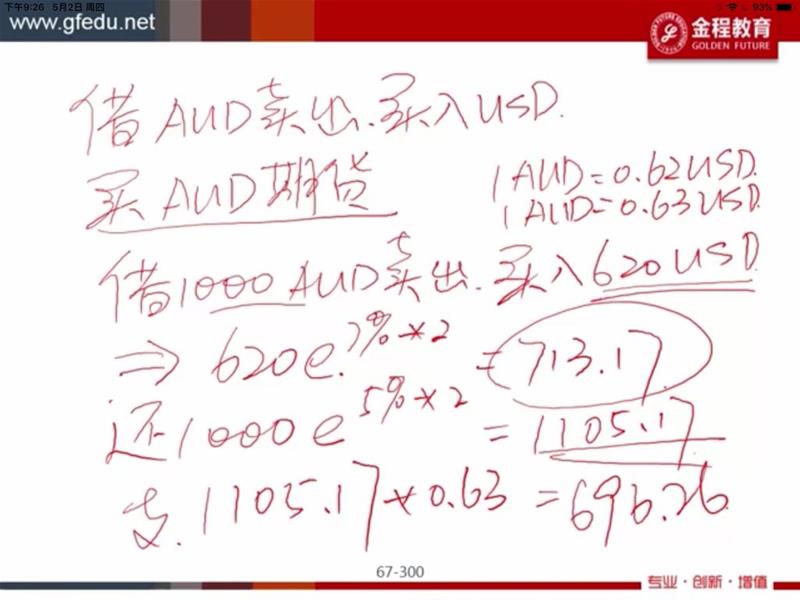 下午9:26 5月2日 周四
93%
www.gfedu.net
金程教育
GOLDEN FUTURE
借AUD卖出.买入USD.
买AUD期货
1AUD=0.62USD.
1AUD=0.63USD.
借1000AUD卖出.买入620USD
⇒ 620e.7%×2 = 713.17
还1000e5%×2 = 1105.17
支.1105.17×0.63=696.26
67-300
专业·创新·增值